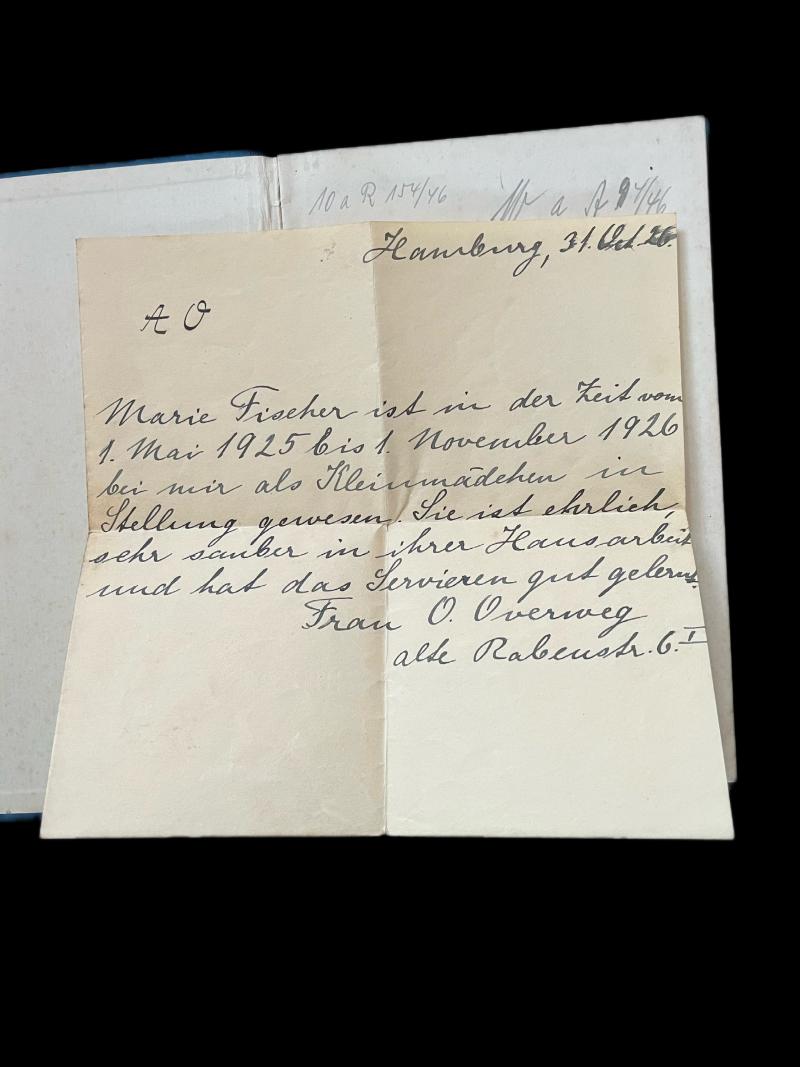 10 a R 154/46
a A 91/46
Hamburg, 31. Oct. 26.
A O
Marie Fischer ist in der Zeit vom
1. Mai 1925 bis 1. November 1926
bei mir als Kleinmädchen in
Stellung gewesen. Sie ist ehrlich,
sehr sauber in ihrer Hausarbeit
und hat das Servieren gut gelernt.
Frau O. Overweg
alte Rabenstr. 6. I